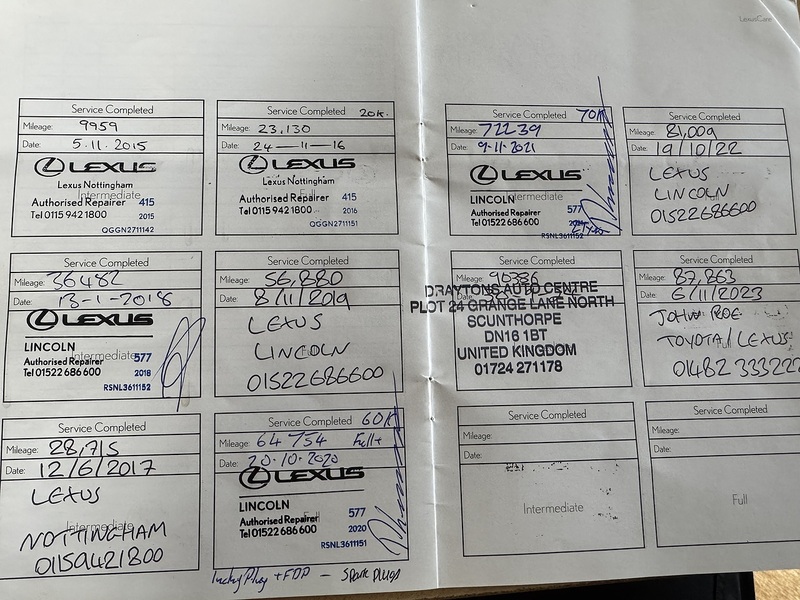 LexusCare
Service Completed
Mileage: 9959
Date: 5.11.2015
LEXUS
Lexus Nottingham
Intermediate
Authorised Repairer 415
Tel 0115 942 1800 2015
QGGN2711142
Service Completed 20K.
Mileage: 23,130
Date: 24-11-16
LEXUS
Lexus Nottingham
Full
Authorised Repairer 415
Tel 0115 942 1800 2016
QGGN2711151
Service Completed
Mileage: 36482
Date: 13-1-2018
LEXUS
LINCOLN
Intermediate
Authorised Repairer 577
Tel 01522 686 600 2018
RSNL3611152
Service Completed
Mileage: 56,880
Date: 8/11/2019
LEXUS
LINCOLN
Full
01522686600
Service Completed
Mileage: 28,715
Date: 12/6/2017
LEXUS
Intermediate
NOTTINGHAM
01159421800
Service Completed 60K
Mileage: 64754 Full+
Date: 20-10-2020
LEXUS
LINCOLN
Full
Authorised Repairer 577
Tel 01522 686 600 2020
RSNL3611151
Plug + FDP - Spark Plugs
Service Completed 70K
Mileage: 72239
Date: 9-11-2021
LEXUS
Intermediate
LINCOLN
577
Tel 01522 686 600
RSNL3611152
Service Completed
Mileage: 81,009
Date: 19/10/22
LEXUS
LINCOLN
Full
01522686600
Service Completed
Mileage: 90386
Date:
DRAYTONS AUTO CENTRE
PLOT 24 GRANGE LANE NORTH
SCUNTHORPE
DN16 1BT
UNITED KINGDOM
01724 271178
Service Completed
Mileage: 87,263
Date: 6/11/2023
JOHN ROE
TOYOTA/LEXUS
Full
01482 333222
Service Completed
Mileage:
Date:
Intermediate
Service Completed
Mileage:
Date:
Full